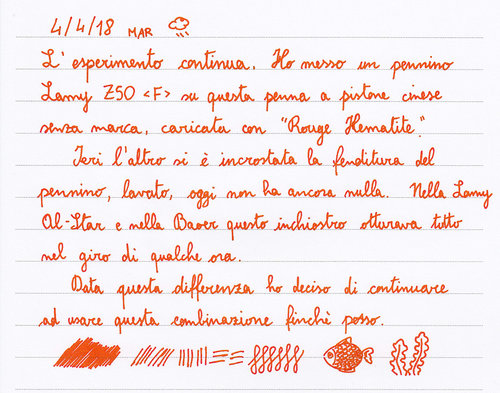 4/4/18 MAR
L'esperimento continua. Ho messo un pennino
Lamy Z50 <F> su questa penna a pistone cinese
senza marca, caricata con "Rouge Hematite."
Ieri l'altro si è incrostata la fenditura del
pennino, lavato, oggi non ha ancora nulla. Nella Lamy
Al-Star e nella Baoer questo inchiostro otturava tutto
nel giro di qualche ora.
Data questa differenza ho deciso di continuare
ad usare questa combinazione finchè posso.